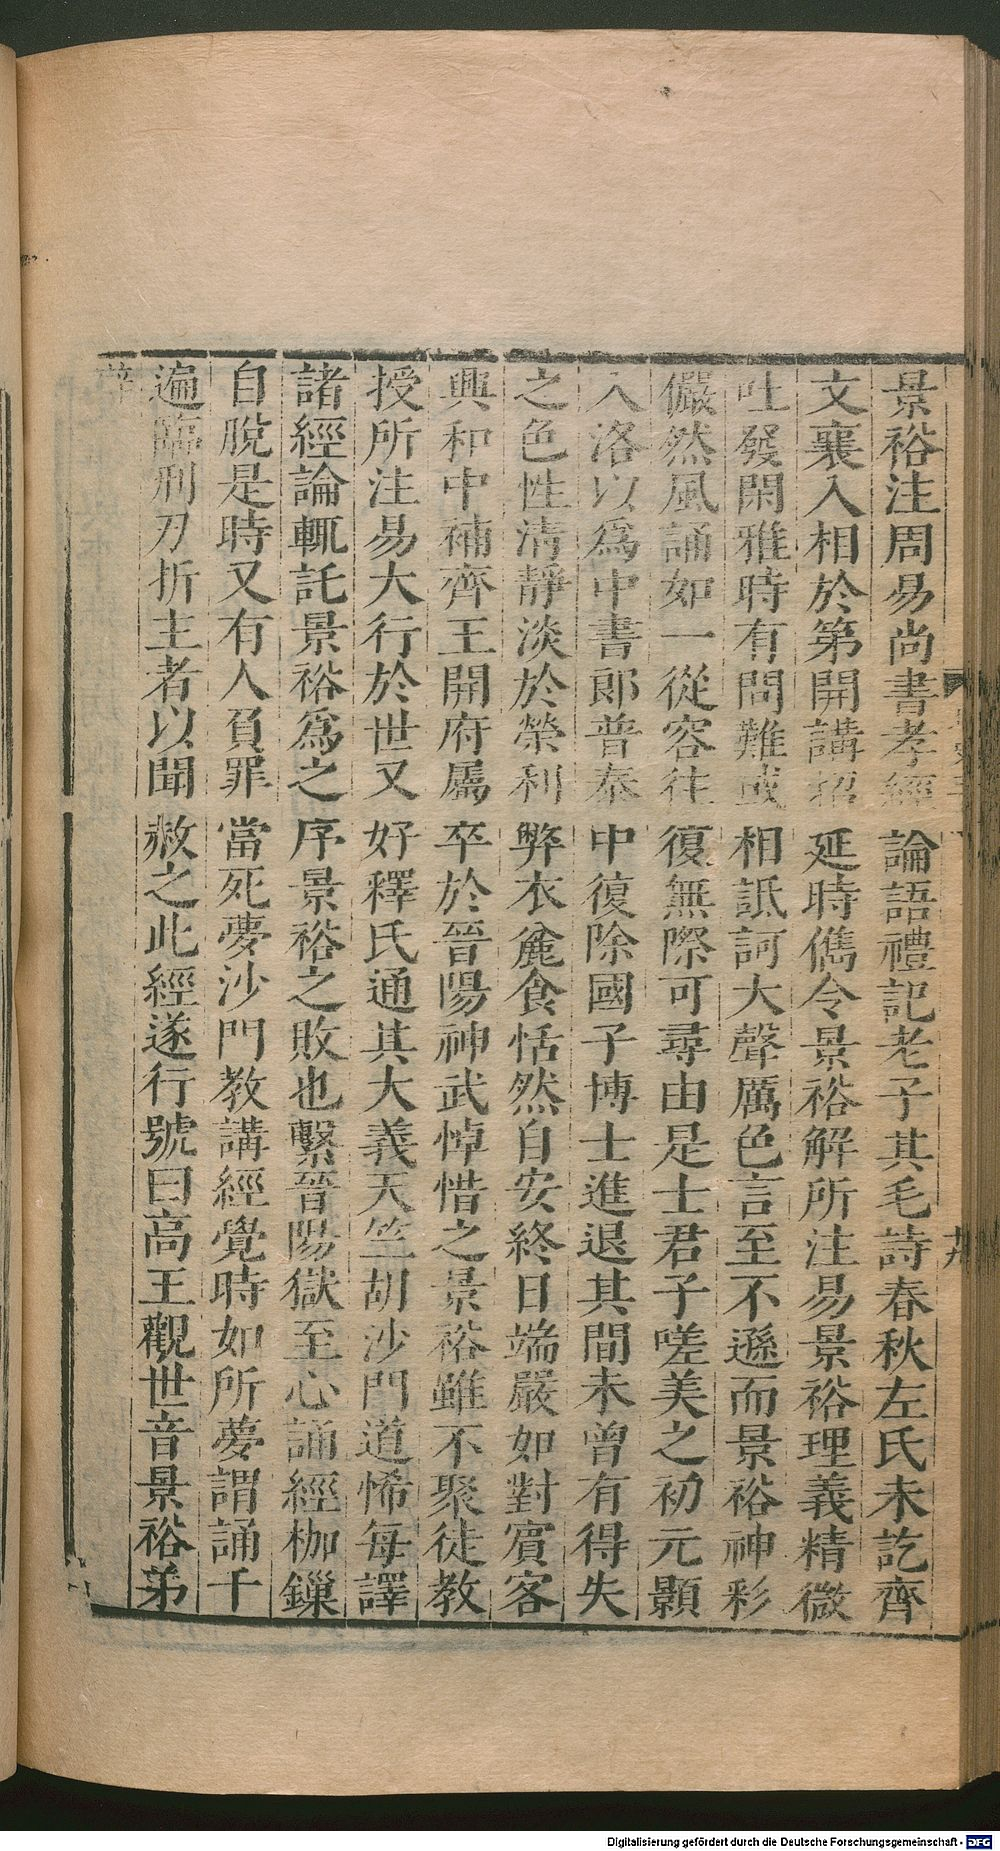 景裕注周易尚書孝經論語禮記老子其毛詩春秋左氏未訖齊
文襄入相於第開講招延時儁令景裕解所注易景裕理義精微
吐發閑雅時有問難或相詆訶大聲厲色言至不遜而景裕神彩
儼然風誦如一從容往復無際可尋由是士君子嗟美之初元顥
入洛以爲中書郎普泰中復除國子博士進退其間未曾有得失
之色性清靜淡於榮利弊衣麄食恬然自安終日端嚴如對賓客
興和中補齊王開府屬卒於晉陽神武悼惜之景裕雖不聚徒教
授所注易大行於世又好釋氏通其大義天竺胡沙門道悕每譯
諸經論輒託景裕爲之序景裕之敗也繫晉陽獄至心誦經枷鏁
自脫是時又有人負罪當死夢沙門教講經覺時如所夢謂誦千
遍臨刑刀折主者以聞赦之此經遂行號曰高王觀世音景裕弟
Digitalisierung gefördert durch die Deutsche Forschungsgemeinschaft - DFG